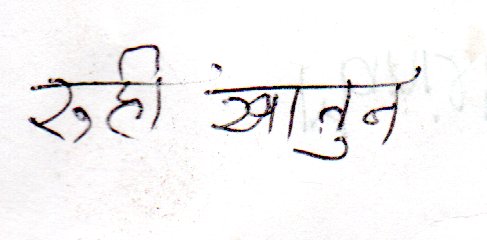 रुही खातुन